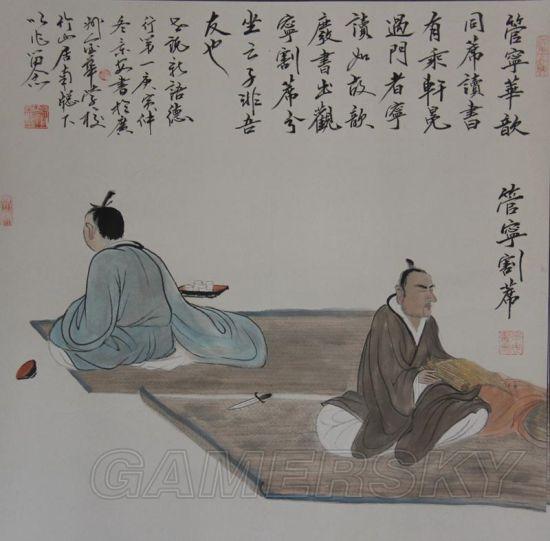 管寧華歆
同席讀書
有乘軒冕
過門者寧
讀如故歆
廢書出觀
寧割席分
坐云子非吾
友也
世說新語德
行第一庚寅仲
書於廣
州金華學校
山居南窓下
管寧割蓆
GAMERSKY